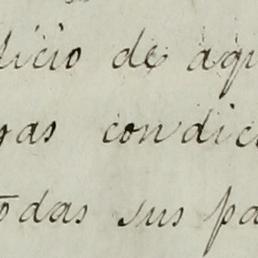 licio de aqu
gas condici
odas sus pa